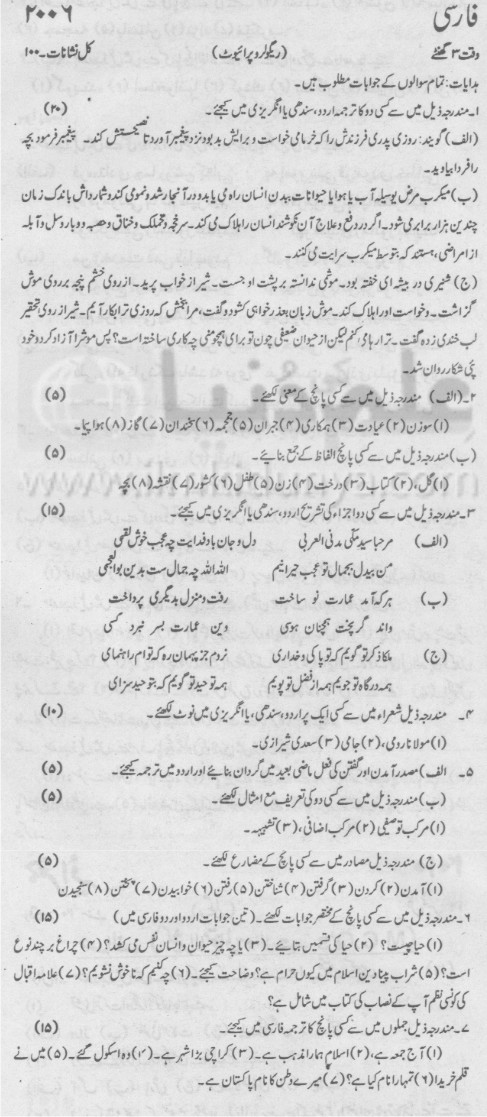 فارسی
۲۰۰۶
وقت ۳ گھنٹے
(ریگولر و پرائیوٹ)
کل نشانات۔ ۱۰۰
ہدایات: تمام سوالوں کے جوابات مطلوب ہیں۔
۱۔ مندرجہ ذیل میں سے کسی دو کا ترجمہ اردو، سندھی یا انگریزی میں کیجئے۔ (۲۰)
(الف) گویند: روزی پدری فرزندش را کہ خرما می خواست و برایش بد بود نزد پیغمبر آورد تا نصیحتش کند۔ پیغمبر فرمود بچہ
را فردا بیاوید۔
(ب) میکرب مرض بوسیلہ آب یا ہوا یا حیوانات ببدن انسان راہ می یابد و در آنجا رشد و نمومی کند و شمارداش باندک زمان
چندین ہزار برابر می شود۔ اگر در رفع و علاج آن نکوشند انسان را ہلاک می کند۔ سرخجہ و مخملک و خناق و حصبہ و وبا و سل و آبلہ
از امراضی، ہستند کہ بتوسط میکرب سرایت می کنند۔
(ج) شیری در بیشہ ای خفتہ بود۔ موشی ندانستہ بر پشت او جست۔ شیر از خواب پرید۔ از روی خشم پنجہ بر روی موش
گزاشت۔ و خواست اورا ہلاک کند۔ موش زبان بعذر خواہی کشود و گفت، مرا بخش کہ روزی ترا بکار آیم۔ شیر از روی تحقیر
لب خندی زدہ گفت۔ ترا رہا می کنم لیکن از حیوان ضعیفی چون تو برای ہمچو منی چہ کاری ساختہ است؟ پس موش را آزاد کرد و خود
پئی شکار روان شد۔
۲۔ (الف) مندرجہ ذیل میں سے کسی پانچ کے معنی لکھئے۔ (۵)
(۱) سوزن (۲) عیادت (۳) ہمکاری (۴) جبران (۵) جمجمہ (۶) یخندان (۷) گاز (۸) ہواپیما۔
(ب) مندرجہ ذیل میں سے کسی پانچ الفاظ کے جمع بنائیے۔ (۵)
(۱) گل، (۲) کتاب (۳) درخت (۴) زن (۵) طفل (۶) کشور (۷) نقشہ (۸) بچہ
۳۔ مندرجہ ذیل میں سے کسی دو اجزاء کی تشریح اردو، سندھی یا انگریزی میں کیجئے۔ (۱۵)
(الف) مرحبا سید مکی مدنی العربی دل و جان باد فدایت چہ عجب خوش لقمی
من بیدل بجمال تو عجب حیرانیم اللہ اللہ چہ جمال ست بدین بوالعجبی
(ب) ہر کہ آمد عمارت نو ساخت رفت و منزل بدیگری پرداخت
واند گر پخت ہمچنان ہوسی وین عمارت بسر نبرد کسی
(ج) ملکا ذکر تو گویم کہ تو پاکی و خداری نروم جز بہمان رہ کہ توام راہنمای
ہمہ درگاہ تو جویم ہمہ از فضل تو پویم ہمہ توحید تو گویم کہ بتوحید سزای
۴۔ مندرجہ ذیل شعراء میں سے کسی ایک پر اردو، سندھی، یا انگریزی میں نوٹ لکھئے۔ (۱۰)
(۱) مولانا رومی، (۲) جامی (۳) سعدی شیرازی۔
۵۔ الف) مصدر آمدن اور گفتن کی فعل ماضی بعید میں گردان بنائیے اور اردو میں ترجمہ کیجئے۔ (۵)
(ب) مندرجہ ذیل میں سے کسی دو کی تعریف مع امثال لکھئے۔ (۵)
(۱) مرکب توصیفی (۲) مرکب اضافی، (۳) تشبیہہ۔
(ج) مندرجہ ذیل مصادر میں سے کسی پانچ کے مضارع لکھئے۔ (۵)
(۱) آمدن (۲) کردن (۳) گرفتن (۴) شناختن (۵) رفتن (۶) خوابیدن (۷) پختن (۸) سنجیدن
۶۔ مندرجہ ذیل میں سے کسی پانچ کے مختصر جوابات لکھئے۔ (تین جوابات اردو اور دو فارسی میں) (۱۵)
(۱) حیا چیست؟ (۲) حیا کی قسمیں بتائیے۔ (۳) با چہ چیز حیوان و انسان نفس می کشد؟ (۴) چراغ بر چند نوع
است؟ (۵) شراب پینا دین اسلام میں کیوں حرام ہے؟ وضاحت کیجئے۔ (۶) چہ کنیم کہ ناخوش نشویم؟ (۷) علامہ اقبال
کی کونسی نظم آپ کے نصاب کی کتاب میں شامل ہے؟
۷۔ مندرجہ ذیل جملوں میں سے کسی پانچ کا ترجمہ فارسی میں کیجئے۔ (۱۵)
(۱) آج جمعہ ہے، (۲) اسلام ہمارا مذہب ہے۔ (۳) کراچی بڑا شہر ہے۔ (۴) وہ اسکول گئے۔ (۵) میں نے
قلم خریدا (۶) تمہارا نام کیا ہے؟ (۷) میرے وطن کا نام پاکستان ہے۔